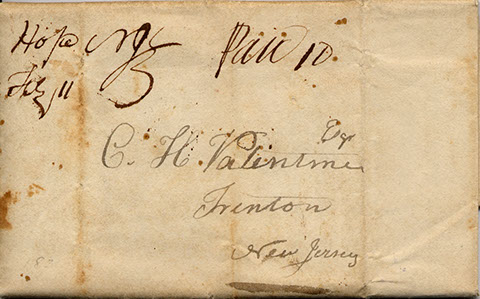 Hope NJ Paid 10
Feb 11
Esq
C. H. Valentine
Trenton
New Jersey